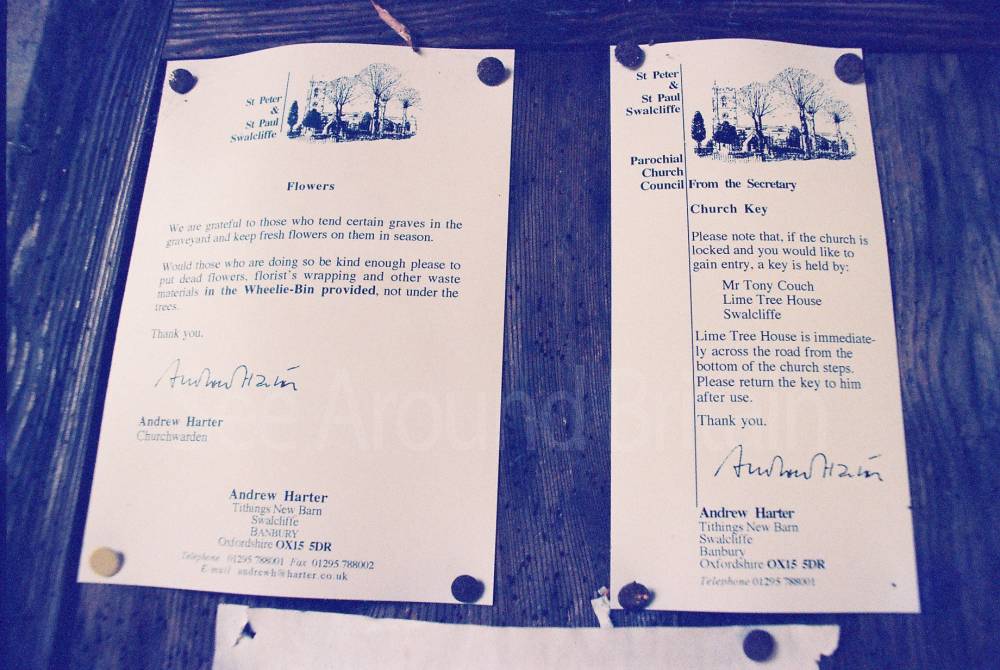 St Peter
&
St Paul
Swalcliffe
Flowers
We are grateful to those who tend certain graves in the
graveyard and keep fresh flowers on them in season.
Would those who are doing so be kind enough please to
put dead flowers, florist's wrapping and other waste
materials in the Wheelie-Bin provided, not under the
trees.
Thank you.
Andrew Harter
Andrew Harter
Churchwarden
Andrew Harter
Tithings New Barn
Swalcliffe
BANBURY
Oxfordshire OX15 5DR
Telephone 01295 788001 Fax 01295 788002
E mail andrewh@harter.co.uk
St Peter
&
St Paul
Swalcliffe
Parochial
Church
Council
From the Secretary
Church Key
Please note that, if the church is
locked and you would like to
gain entry, a key is held by:
Mr Tony Couch
Lime Tree House
Swalcliffe
Lime Tree House is immediate-
ly across the road from the
bottom of the church steps.
Please return the key to him
after use.
Thank you.
Andrew Harter
Andrew Harter
Tithings New Barn
Swalcliffe
Banbury
Oxfordshire OX15 5DR
Telephone 01295 788001
See Around Britain